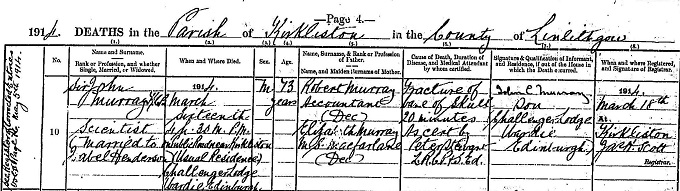 Page 4.
1914. DEATHS in the Parish of Kirkliston in the County of Linlithgow
(1.) (2.) (3.) (4.) (5.) (6.) (7.) (8.)
No.
Name and Surname.
Rank or Profession, and whether
Single, Married, or Widowed.
When and Where Died.
Sex.
Age.
Name, Surname, & Rank or Profession
of Father.
Name, and Maiden Surname of Mother.
Cause of Death, Duration of
Disease, and Medical Attendant
by whom certified.
Signature & Qualification of Informant,
and Residence, if out of the House in
which the Death occurred.
When and where Registered,
and Signature of Registrar.
10
Sir John
Murray K.C.B.
Scientist
(Married to
Isabel Henderson)
1914.
March
Sixteenth
3h. 30m. P.M.
Kirkliston
(Usual Residence
Challenger Lodge
Wardie Edinburgh)
M
73
years
Robert Murray
Accountant
(Dec)
Elizabeth Murray
M.S. Macfarlane
(Dec)
Fracture of
bone of Skull
20 minutes
As cert by
John C Murray
Son
Challenger Lodge
Wardie
Edinburgh
1914
March 18th
At
Kirkliston
Scott
Registrar.